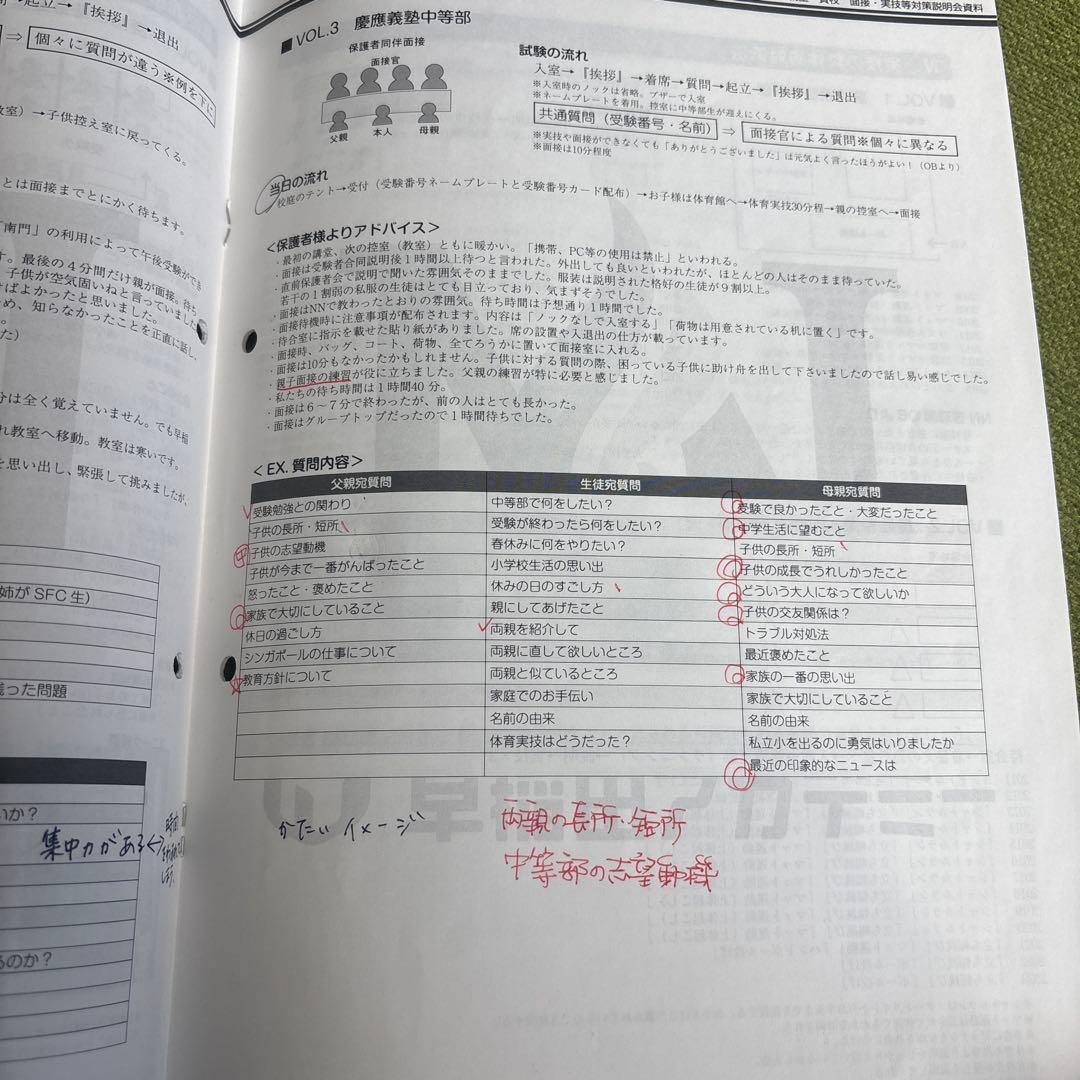 面接・実技等対策説明会資料
■VOL.3 慶應義塾中等部
保護者同伴面接
面接官
父親
本人
母親
試験の流れ
入室→『挨拶』→着席→質問→起立→『挨拶』→退出
※入室時のノックは省略。ブザーで入室
※ネームプレートを着用。控室に中等部生が迎えにくる。
共通質問（受験番号・名前）⇒ 面接官による質問※個々に異なる
※実技や面接ができなくても「ありがとうございました」は元気よく言ったほうがよい！（OBより）
※面接は10分程度
当日の流れ
校庭のテント→受付（受験番号ネームプレートと受験番号カード配布）→お子様は体育館へ→体育実技30分程→親の控室へ→面接
＜保護者様よりアドバイス＞
・最初の講堂、次の控室（教室）ともに暖かい。「携帯、PC等の使用は禁止」といわれる。
・面接は受験者合同説明後１時間以上待つと言われた。外出しても良いといわれたが、ほとんどの人はそのまま待っていた。
・直前保護者会で説明で聞いた雰囲気そのままでした。服装は説明された格好の生徒が９割以上。
若干の１割弱の私服の生徒はとても目立っており、気まずそうでした。
・面接はNNで教わったとおりの雰囲気。待ち時間は予想通り１時間でした。
・面接待機時に注意事項が配布されます。内容は「ノックなしで入室する」「荷物は用意されている机に置く」です。
・待合室に指示を載せた貼り紙がありました。席の設置や入退出の仕方が載っています。
・面接時、バッグ、コート、荷物、全てろうかに置いて面接室に入れる。
・面接は10分もなかったかもしれません。子供に対する質問の際、困っている子供に助け舟を出して下さいましたので話し易い感じでした。
・親子面接の練習が役に立ちました。父親の練習が特に必要と感じました。
・私たちの待ち時間は１時間40分。
・面接は６～７分で終わったが、前の人はとても長かった。
・面接はグループトップだったので１時間待ちでした。
＜EX.質問内容＞
父親宛質問 生徒宛質問 母親宛質問
受験勉強との関わり 中等部で何をしたい？ 受験で良かったこと・大変だったこと
子供の長所・短所 受験が終わったら何をしたい？ 中学生活に望むこと
子供の志望動機 春休みに何をやりたい？ 子供の長所・短所
子供が今まで一番がんばったこと 小学校生活の思い出 子供の成長でうれしかったこと
怒ったこと・褒めたこと 休みの日のすごし方 どういう大人になって欲しいか
家族で大切にしていること 親にしてあげたこと 子供の交友関係は？
休日の過ごし方 両親を紹介して トラブル対処法
シンガポールの仕事について 両親に直して欲しいところ 最近褒めたこと
教育方針について 両親と似ているところ 家族の一番の思い出
家庭でのお手伝い 家族で大切にしていること
名前の由来 名前の由来
体育実技はどうだった？ 私立小を出るのに勇気はいりましたか
最近の印象的なニュースは
かたい イメージ
両親の長所・短所
中等部の志望動機
起立→『挨拶』→退出
⇒ 個々に質問が違う※例を下に
→子供控え室に戻ってくる。
とは面接までとにかく待ちます。
「南門」の利用によって午後受験ができ
す。最後の４分間だけ親が面接。待ち
子供が空気固いねと言っていました
ばよかったと思いました。
め、知らなかったことを正直に話し、
た）
分は全く覚えていません。でも早稲
れ教室へ移動。教室は寒いです。
を思い出し、緊張して挑みましたが、
姉がSFC生）
残った問題
いか？
集中力がある
るのか？